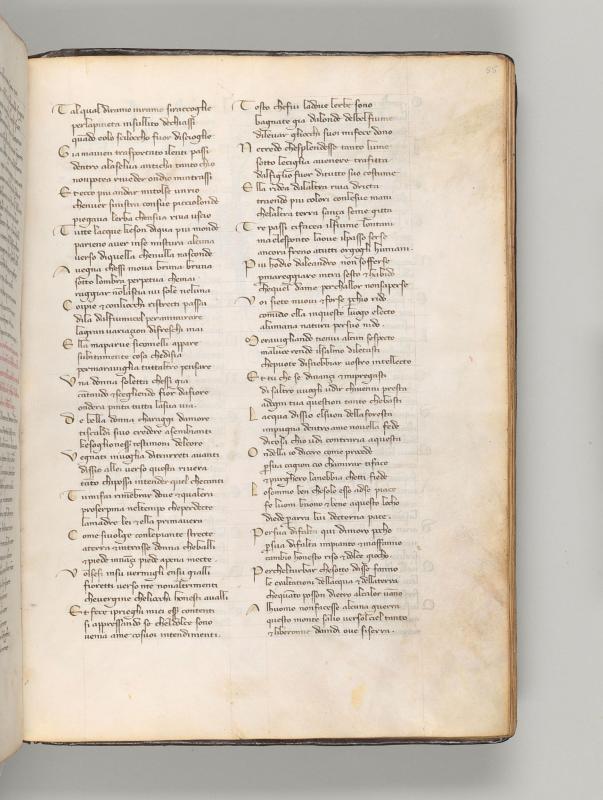 Tal qual diramo inramo siraccoglie
perlapineta insullito dechiassi
quãdo eolo scilocho fuor discioglie
Gia mavien trasportato ilenti passi
dentro alaselva anticha tanto chio
nonpotea riveder ondio mintrassi
Et ecco piu andar mitolse unrio
chenver sinistra consue picciolonde
piegava lerba chensua riva uscio
Tutte lacque keson diqua piu monde
parieno aver inse mistura alcuna
verso diquella chenulla nasconde
Avegna chessi mova bruna bruna
sotto lombra perpetua chemai
raggiar nonlascia ivi sole neluna
Coipie ristretti e conliocchi passai
dila dalfiumicel perammirare
lagran variaçion difreschi mai
Ella maparve sicomelli appare
subitamente cosa chedisvia
permaraviglia tuttaltro pensare
Una donna soletta chessi gia
cãtando e sciegliendo fior dafiore
ondera pinta tutta lasua via
De bella donna charaggi damore
tiscaldi sivo credere asembianti
kesoglionesser testimoni delcore
Vegnati invoglia ditrarreti avanti
dissio allei verso questa rivera
tanto chipossa intender quel checanti
Tu mifai rimẽbrar dove e qualera
proserpina neltempo cheperdecte
lamadre lei & ella primavera
Come sivolge conlepiante strecte
aterra e intrasse donna cheballi
e piede innãçi piede apena mecte
Volsesi insu vermigli ensu gialli
fioretti verso me nonaltrimenti
chevergine cheliocchi honesti avalli
Et fece iprieghi miei esser contenti
si appressando se cheldolce sono
venia ame cosuoi intendimenti.
Tosto chefui ladove lerbe sono
bagnate gia dalonde delbel fiume
dilevar gliocchi suoi mifece dono
Non credo chesplendesse tanto lume
sotto leciglia avenere trafitta
dalfiglio fuor ditutto suo costume
Ella ridea dalaltra riva dricta
traendo piu colori conlesue mani
chelaltra terra sança seme gitta
Tre passi cifacea ilfiume lontani
ma elesponto laove ilpasso serse
ancora freno atutti orgogli humani.
Piu hodio daleandro non sofferse
pmareggiare intra sesto e habido
chequel dame perchallor nonsaperse
Voi siete nuovi e forse pchio rido
comĩcio ella inquesto luogo electo
alhumana natura persuo nido
Maravigliando tienvi alcun sospecto
maluce rende ilsalmo dilectasti
chepuote disnebbiar vostro intellecto
Et tu che se dinançi e mipregasti
di saltro vuogli udir chiivenni presta
adogni tua question tanto chebasti
Lacqua dissio elsuon dellaforesta
impugna dentro ame novella fede
dicosa chio udi contraria aquesta
Ondella io dicero come procede
psua cagion cio chamirar tiface
e purghero lanebbia chetti fiede
Losommo ben chesolo esso adse piace
fe luom buono e bene aquesto locho
diede parra lui decterna pace.
Persua difalta qui dimoro pocho
psua difalta inpianto e inaffanno
cambio honesto riso e dolce giocho
Percheltturbar chesotto dasse fanno
le exalation dellacqua e dellaterra
chequãto posson dietro alcalor vano
Alluomo nonfacesse alcuna guerra
questo monte salio versolciel tanto
e liberonne daindi ove siserra.